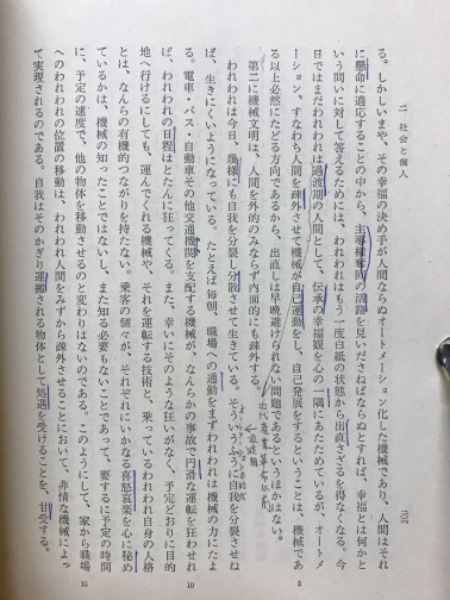 二 社会と個人
る。しかしいまや、その幸福の決め手が人間ならぬオートメーション化した機械であり、人間はそれ
に懸命に適応することの中から、主導権奪回の活路を見いださねばならぬとすれば、幸福とは何かと
いう問いに対して答えるためには、われわれはもう一度白紙の状態から出直さざるを得なくなる。今
日ではまだわれわれは過渡期の人間として、伝承の幸福観を心の一隅にあたためているが、オートメ
ーション、すなわち人間を疎外させて機械が自己運動をし、自己発展をするということは、機械であ
る以上必然にたどる方向であるから、出直しは早晩避けられない問題であるというほかはない。
第二に機械文明は、人間を外的のみならず内面的にも疎外する。
われわれは今日、幾様にも自我を分裂し分散させて生きている。そういうふうに自我を分裂させね
ば、生きにくいようになっている。たとえば毎朝、職場への通勤をまずわれわれは機械の力にたよ
る。電車・バス・自動車その他交通機関を支配する機械が、なんらかの事故で円滑な運転を狂わせれ
ば、われわれの日程はとたんに狂ってくる。また、幸いにそのような狂いがなく、予定どおりに目的
地へ行けるにしても、運んでくれる機械や、それを運転する技術と、乗っているわれわれ自身の人格
とは、なんらの有機的つながりを持たない。乗客の個々が、それぞれにいかなる喜怒哀楽を心に秘め
ているかは、機械の知ったことではないし、また知る必要もないことであって、要するに予定の時間
に、予定の速度で、他の物体を移動させるのと変わりはないのである。このようにして、家から職場
へのわれわれの位置の移動は、われわれ人間をみずから疎外させることにおいて、非情な機械によっ
て実現されるのである。自我はそのかぎり運搬される物体として処遇を受けることを、甘受する。
5
10
15